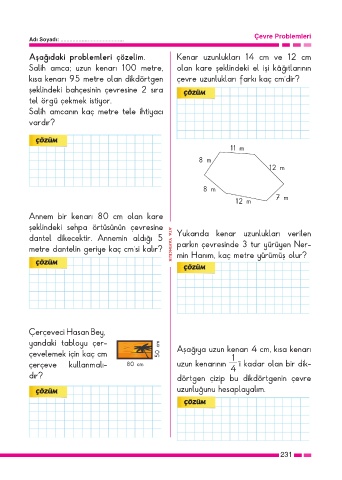 Adı Soyadı: ..............................
Çevre Problemleri
Aşağıdaki problemleri çözelim.
Salih amca; uzun kenarı 100 metre,
kısa kenarı 95 metre olan dikdörtgen
şeklindeki bahçesinin çevresine 2 sıra
tel örgü çekmek istiyor.
Salih amcanın kaç metre tele ihtiyacı
vardır?
ÇÖZÜM
Annem bir kenarı 80 cm olan kare
şeklindeki sehpa örtüsünün çevresine
dantel dikecektir. Annemin aldığı 5
metre dantelin geriye kaç cm'si kalır?
ÇÖZÜM
Çerçeveci Hasan Bey,
yandaki tabloyu çer-
çevelemek için kaç cm
çerçeve kullanmalı-
dır?
50 cm
80 cm
ÇÖZÜM
Kenar uzunlukları 14 cm ve 12 cm
olan kare şeklindeki el işi kâğıtlarının
çevre uzunlukları farkı kaç cm'dir?
ÇÖZÜM
11 m
8 m
12 m
8 m
7 m
12 m
Yukarıda kenar uzunlukları verilen
parkın çevresinde 3 tur yürüyen Ner-
min Hanım, kaç metre yürümüş olur?
ÇÖZÜM
Aşağıya uzun kenarı 4 cm, kısa kenarı
uzun kenarının 1/4 'i kadar olan bir dik-
dörtgen çizip bu dikdörtgenin çevre
uzunluğunu hesaplayalım.
ÇÖZÜM
231